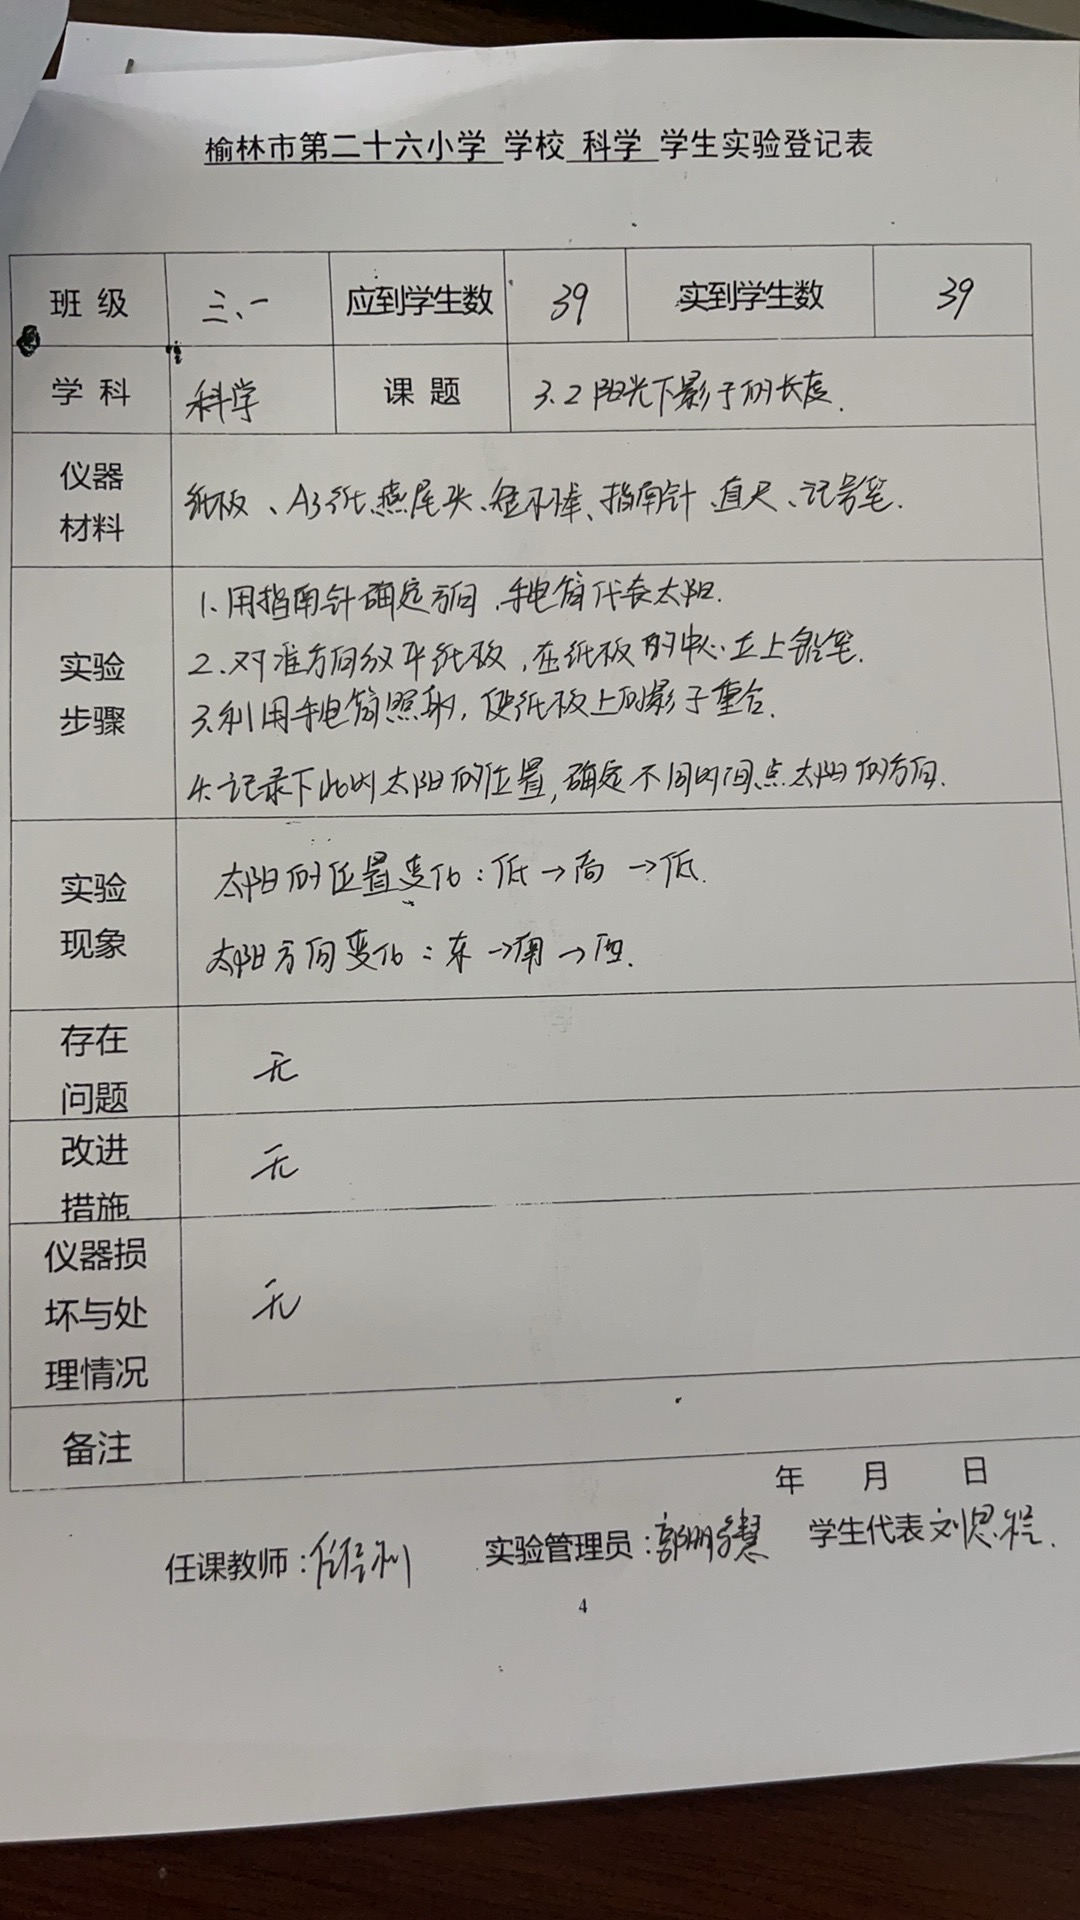 榆林市第二十六小学 学校 科学 学生实验登记表
班 级 三、一 应到学生数 39 实到学生数 39
学 科 科学 课 题 3.2阳光下影子的长度.
仪器
材料
纸板、A3纸、燕尾夹、短木棒、指南针、直尺、记号笔.
实验
步骤
1.用指南针确定方向,手电筒代表太阳.
2.对准方向放平纸板,在纸板的中心立上铅笔.
3.利用手电筒照射,使纸板上的影子重合.
4.记录下此时太阳的位置,确定不同时间点太阳的方向.
实验
现象
太阳的位置变化:低→高→低.
太阳方向变化:东→南→西.
存在
问题
无
改进
措施
无
仪器损
坏与处
理情况
无
备注
年 月 日
任课教师: 实验管理员: 学生代表
4